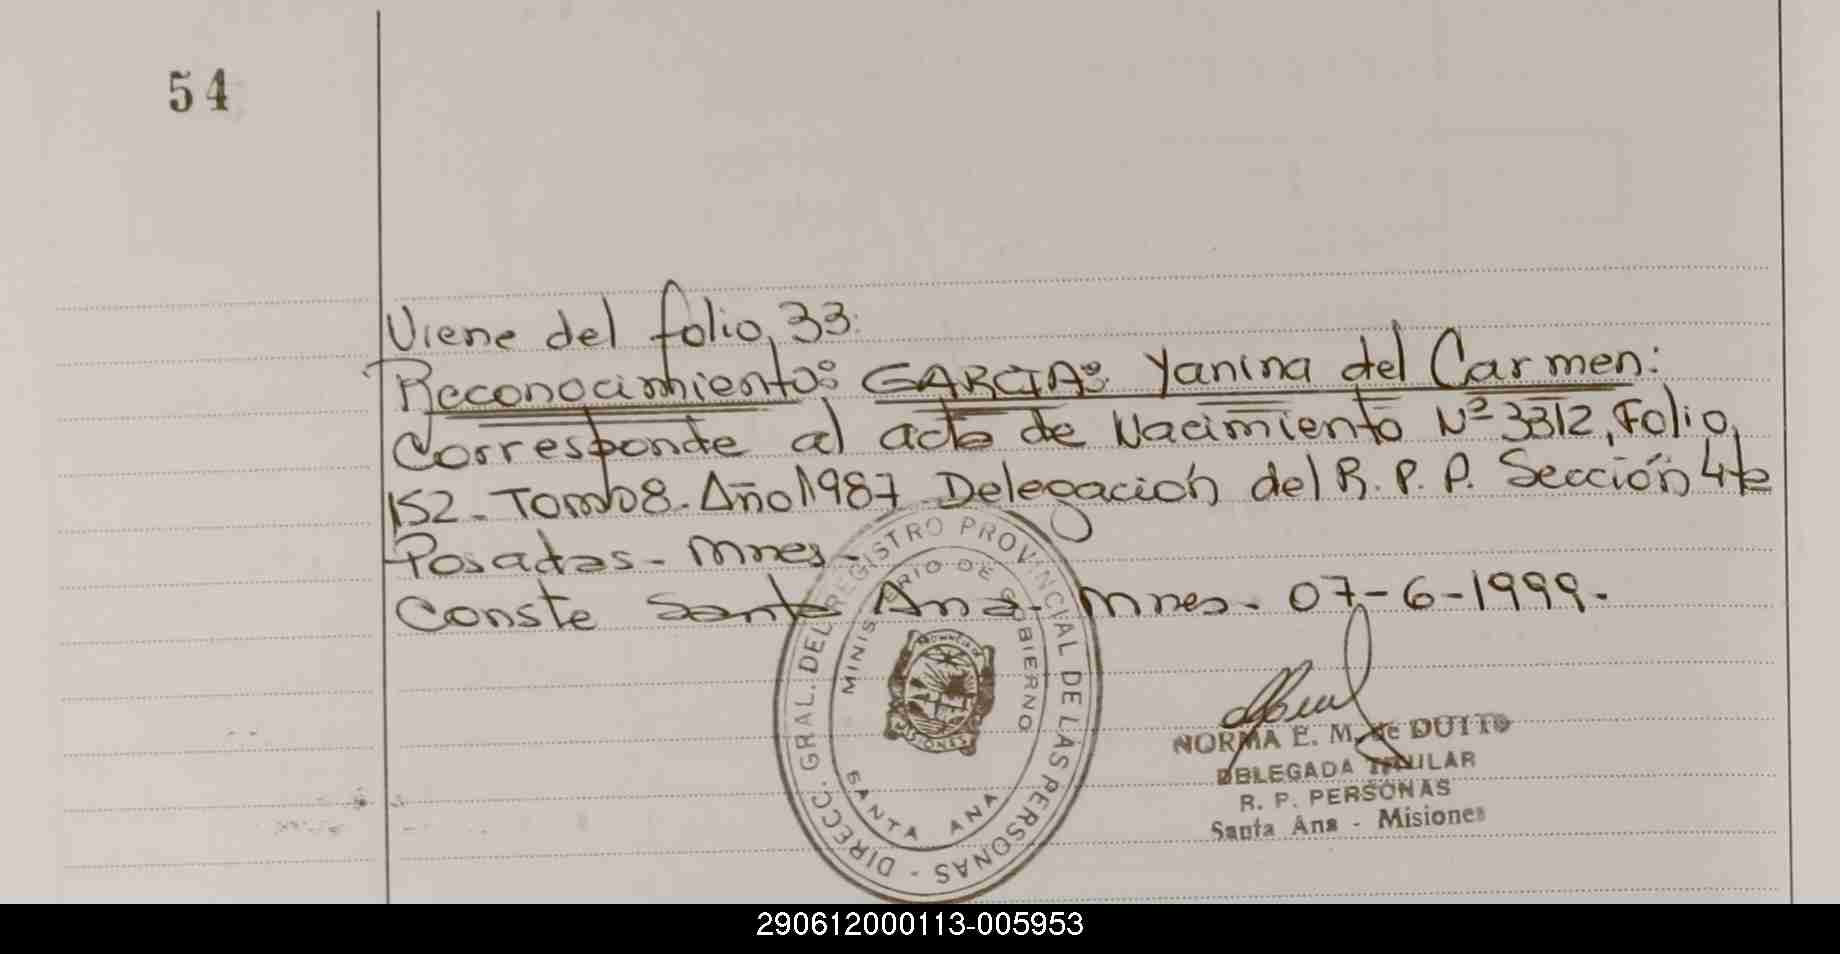 54
Viene del folio 33.
Reconocimiento: GARCIA: Yanina del Carmen:
Corresponde al acta de Nacimiento Nº 3312, Folio
152 - Tomo 8 - Año 1987 Delegación del R. P. P. Sección 4ta
Posadas - Mnes -
Conste Santa Ana - Mnes - 07-6-1999.-
DIRECC. GRAL. DEL REGISTRO PROVINCIAL DE LAS PERSONAS -
MINISTERIO DE GOBIERNO
MISIONES
SANTA ANA
NORMA E. M. de DUTTO
DELEGADA TITULAR
R. P. PERSONAS
Santa Ana - Misiones
290612000113-005953